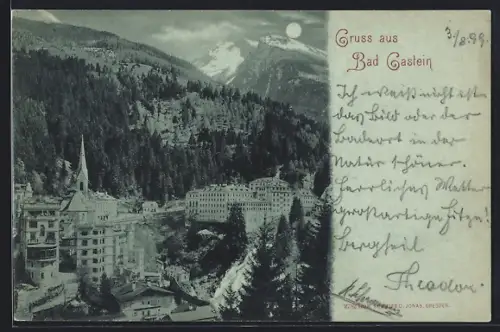 Gruss aus
Bad Gastein
3/8.99.
Ich weiß nicht ist
das Bild oder der
Badeort in der
Natur schöner.
Herrliches Wetter
großartige Hitze!
Bergheil
Theodor.
DRESDEN.